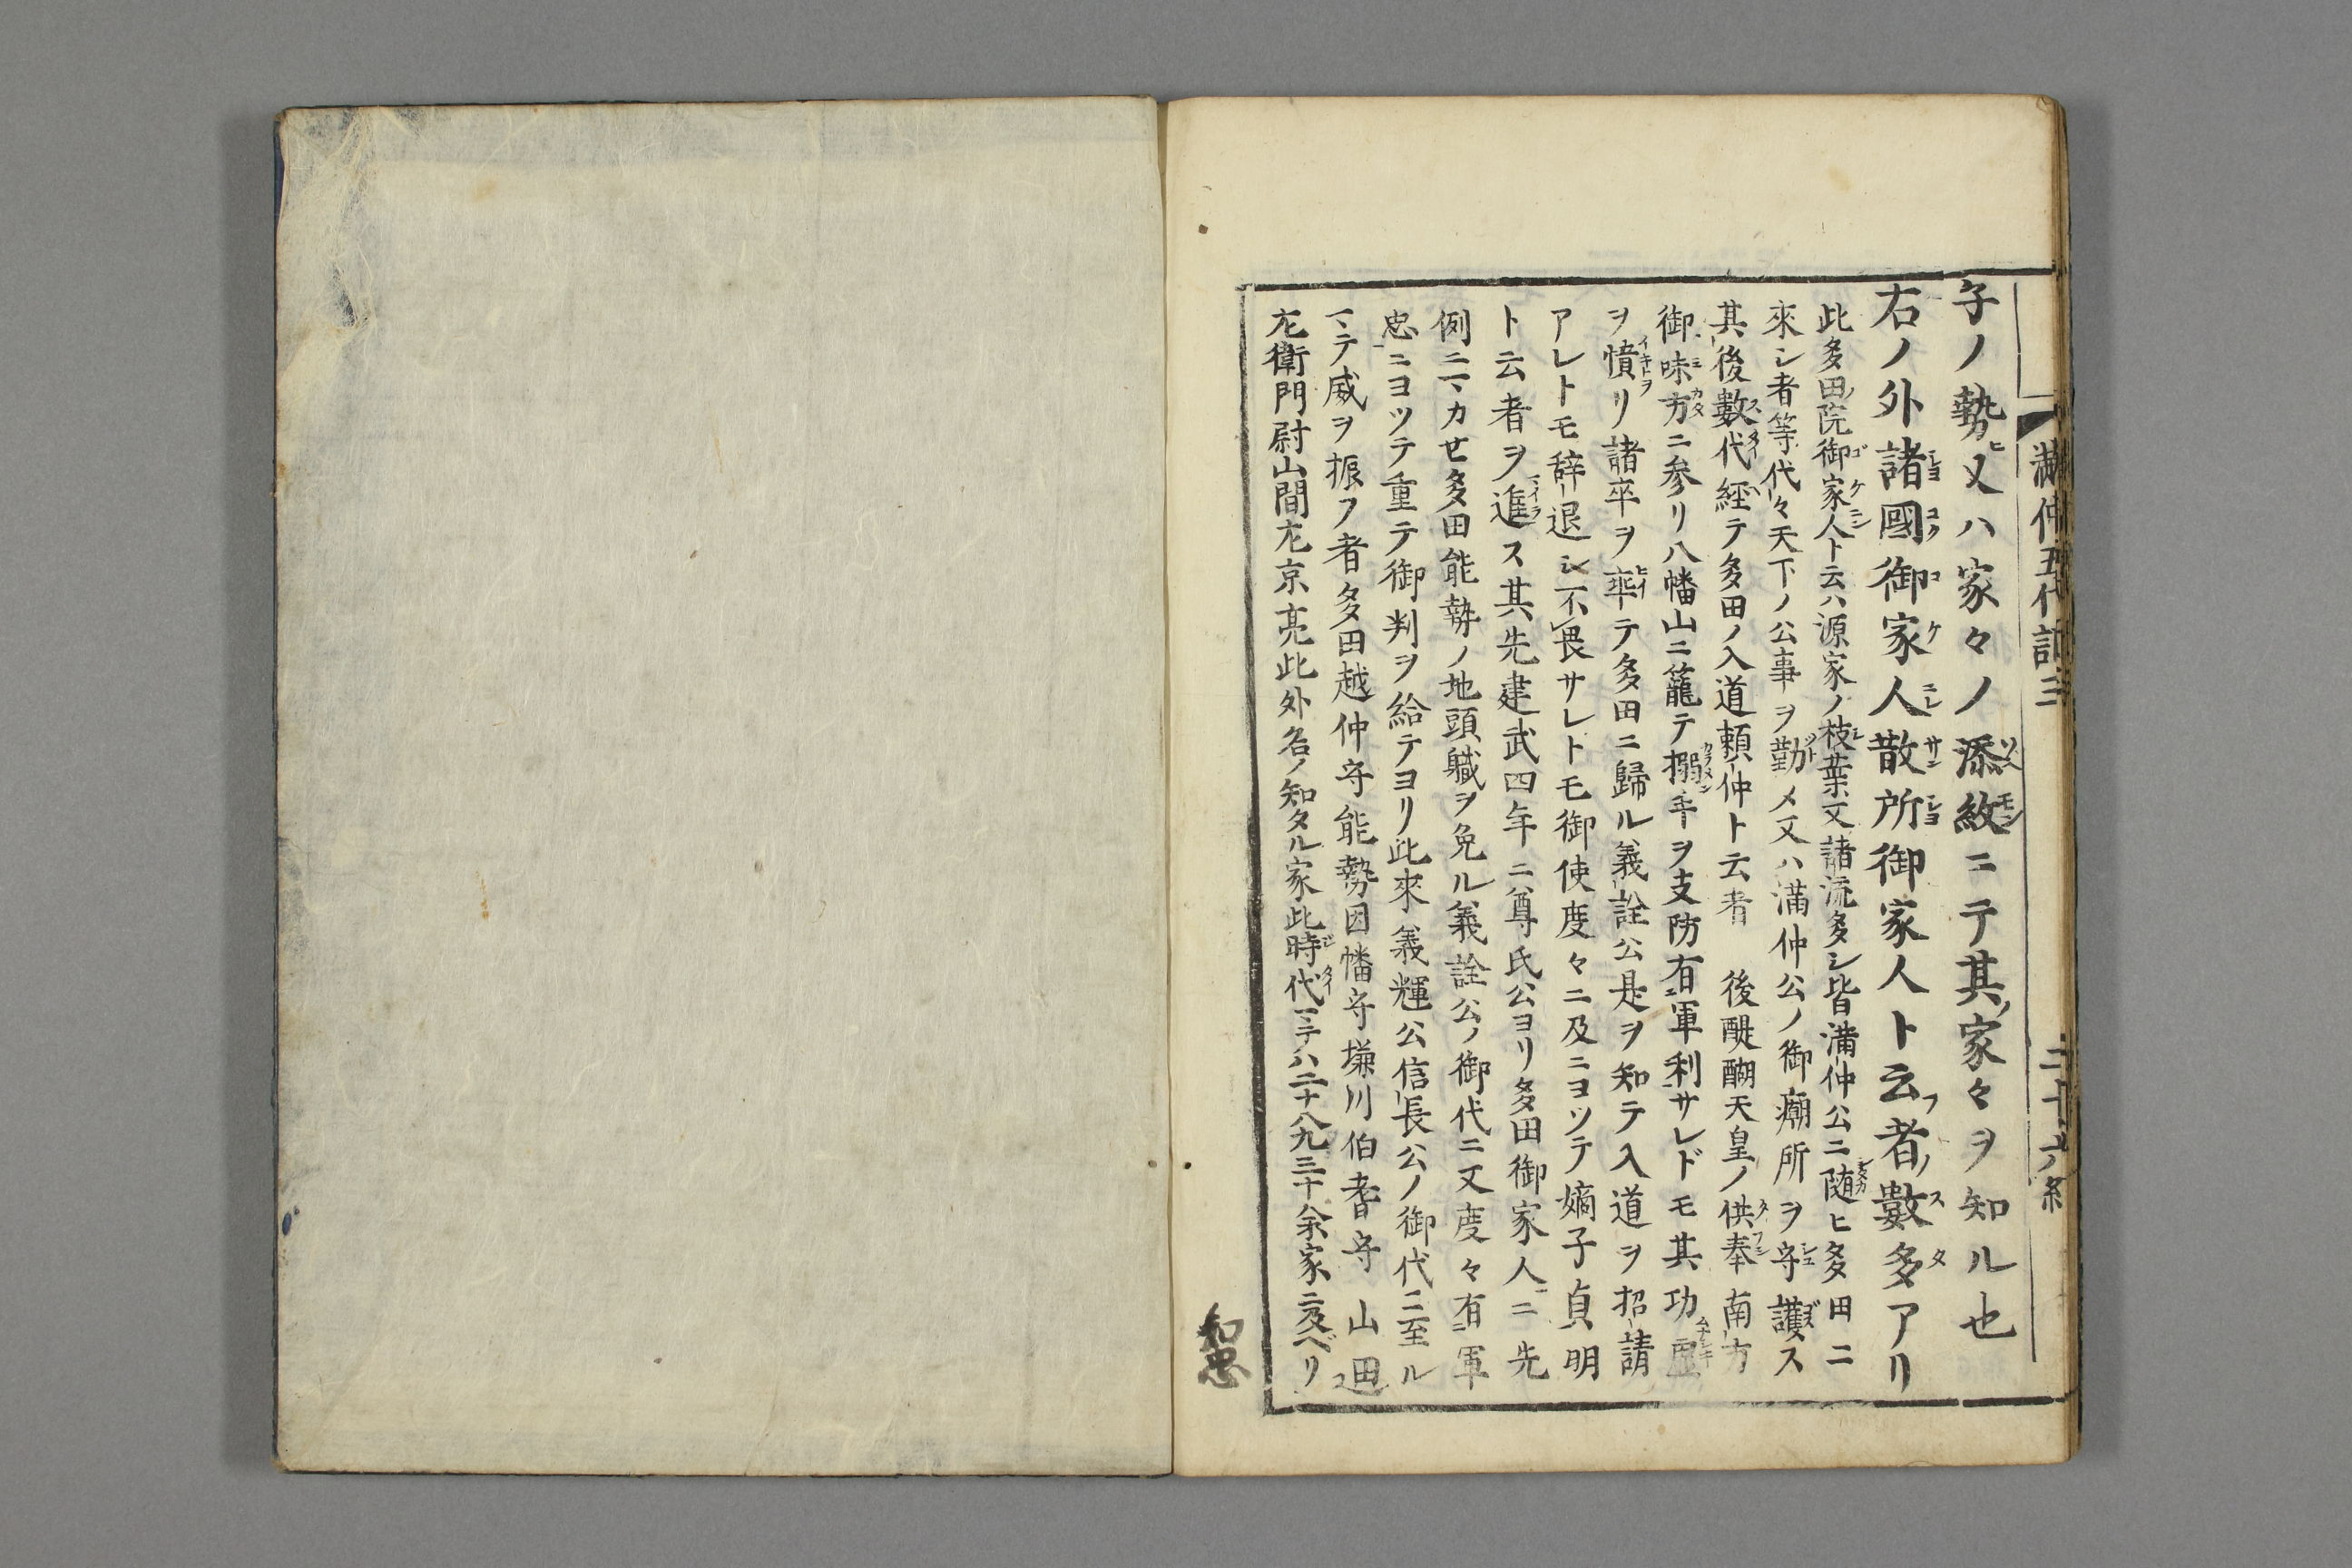 満仲五代記三
二十六終
子ノ勢ヒ又ハ家々ノ添紋ニテ其ノ家々ヲ知ル也
右ノ外諸國御家人散所御家人ト云フ者ノ數多アリ
此多田ノ院御家人ト云ハ源家ノ枝葉又諸流多シ皆満仲公ニ随ヒ多田ニ
來シ者等代々天下ノ公事ヲ勤メ又ハ満仲公ノ御廟所ヲ守護ス
其後數代經テ多田ノ入道頼仲ト云者 後醍醐天皇ノ供奉南方
御味方ニ参リ八幡山ニ籠テ搦手ヲ支防有軍利サレドモ其功虚
ヲ憤リ諸卒ヲ率テ多田ニ歸ル義詮公是ヲ知テ入道ヲ招請
アレトモ辞退シ不畏サレトモ御使度々ニ及ニヨツテ嫡子貞明
ト云者ヲ進ス其先建武四年ニ尊氏公ヨリ多田御家人ニ先
例ニマカセ多田能勢ノ地頭職ヲ免ル義詮公ノ御代ニ又度々有軍
忠ニヨツテ重テ御判ヲ給テヨリ此來義輝公信長公ノ御代ニ至ル
マテ威ヲ振フ者多田越仲守能勢因幡守塩川伯耆守 山田
左衛門尉山間左京亮此外名ノ知タル家此時代マテハ二十八九三十余家ニ及ベリ